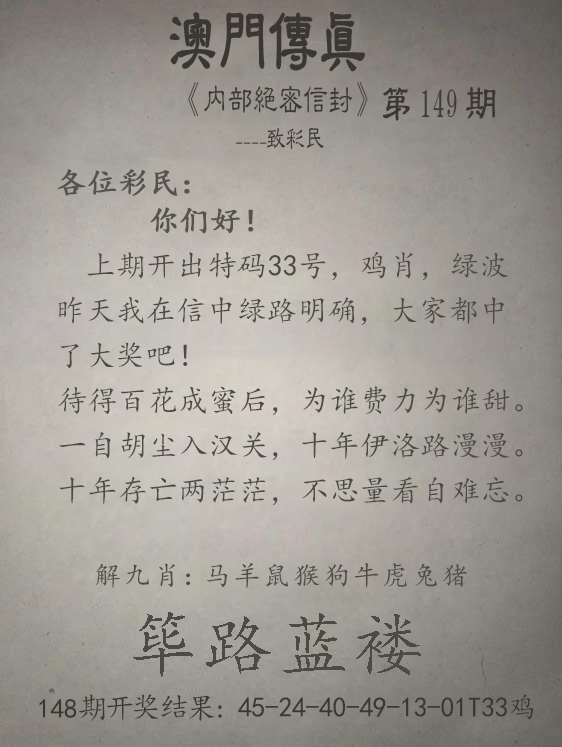 澳門傳真
《内部絕密信封》第149期
----致彩民
各位彩民：
你们好！
上期开出特码33号，鸡肖，绿波
昨天我在信中绿路明确，大家都中
了大奖吧！
待得百花成蜜后，为谁费力为谁甜。
一自胡尘入汉关，十年伊洛路漫漫。
十年存亡两茫茫，不思量看自难忘。
解九肖：马羊鼠猴狗牛虎兔猪
筚路蓝褛
148期开奖结果：45-24-40-49-13-01T33鸡